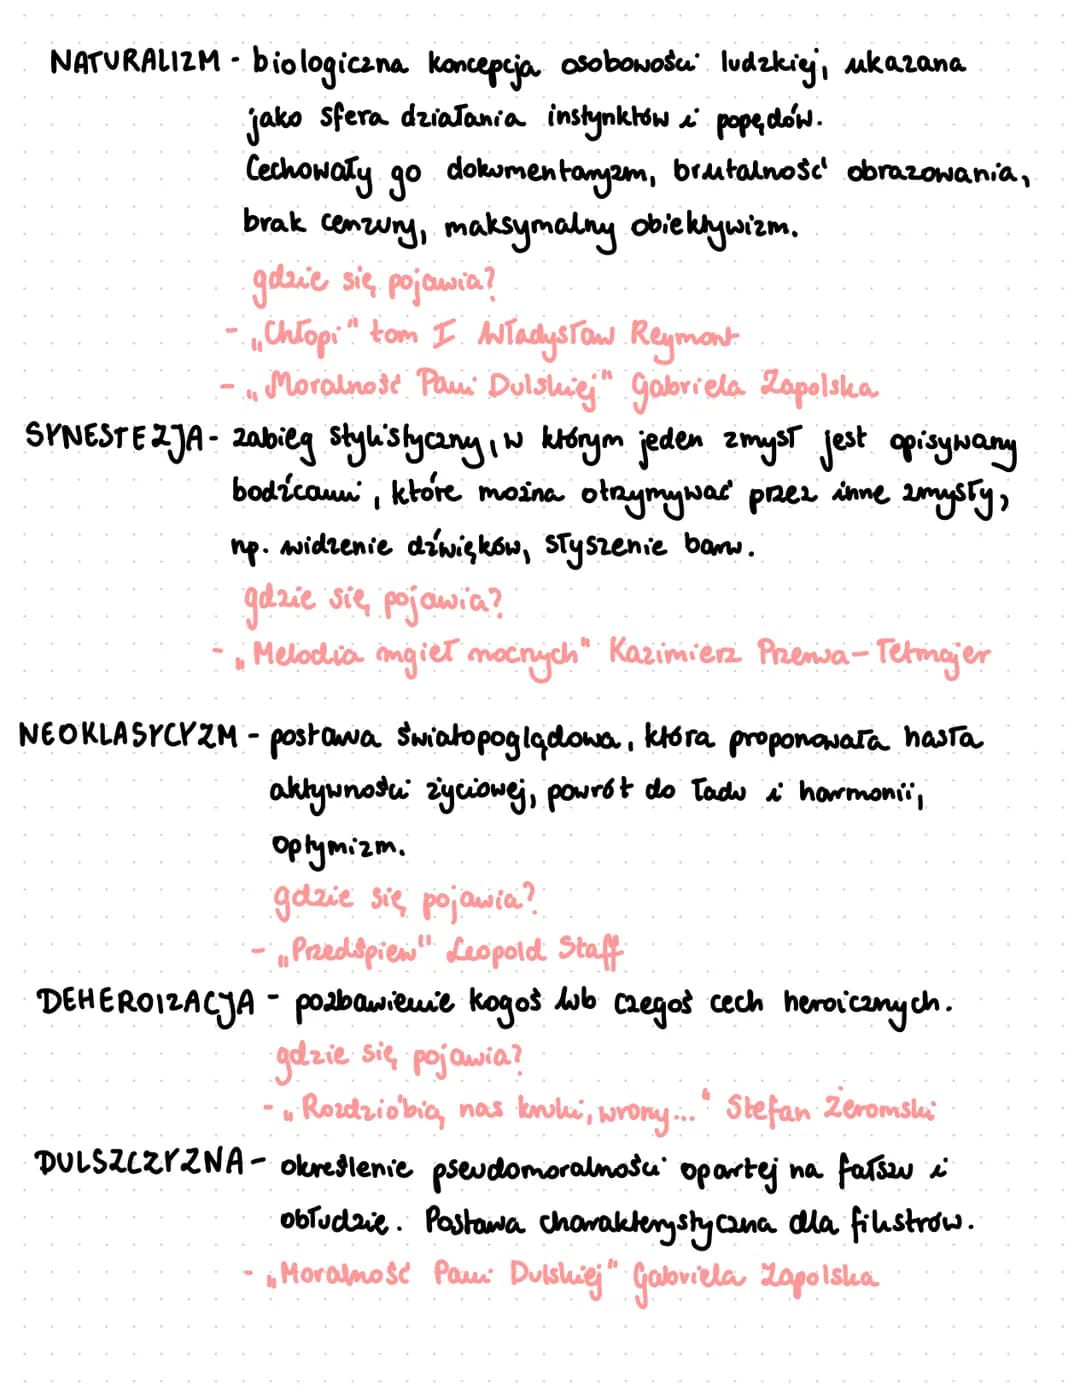 NATURALIZM - biologiczna koncepcja osobowości ludzkiej, ukazana
jako sfera działania instynktów i popędów.
Cechowały go dokumentaryzm, brutalność obrazowania,
brak cenzury, maksymalny obiektywizm.
gdzie się pojawia?
- „Chłopi" tom I Władysław Reymont
- „Moralność Pani Dulskiej" Gabriela Zapolska
SYNESTEZJA - zabieg stylistyczny, w którym jeden zmysł jest opisywany
bodźcami, które można otrzymywać przez inne zmysły,
np. widzenie dźwięków, słyszenie barw.
gdzie się pojawia?
- „Melodia mgieł nocnych" Kazimierz Przerwa-Tetmajer
NEOKLASYCYZM - postawa światopoglądowa, która proponowała hasła
aktywności życiowej, powrót do ładu i harmonii,
optymizm.
gdzie się pojawia?
- „Przedśpiew" Leopold Staff
DEHEROIZACJA - pozbawienie kogoś lub czegoś cech heroicznych.
gdzie się pojawia?
- „Rozdzióbią nas kruki, wrony..." Stefan Żeromski
DULSZCZYZNA - określenie pseudomoralności opartej na fałszu i
obłudzie. Postawa charakterystyczna dla filistrów.
- „Moralność Pani Dulskiej" Gabriela Zapolska